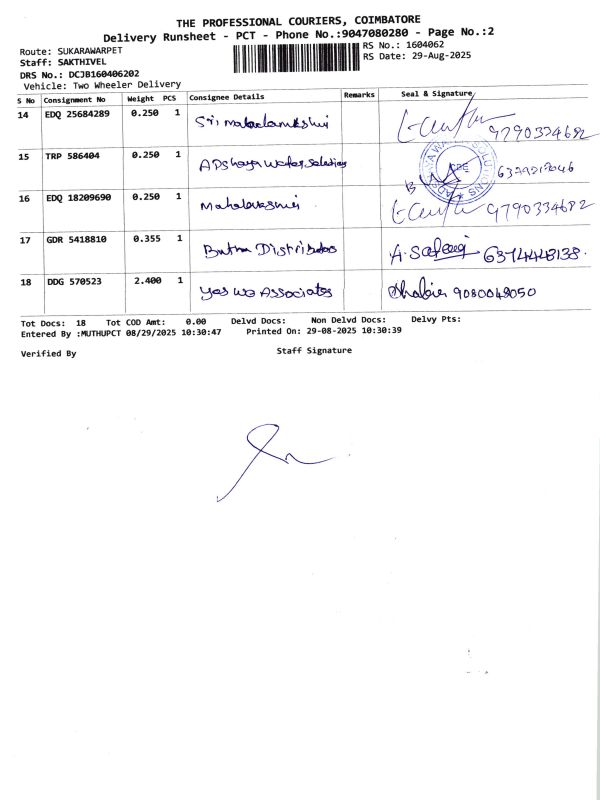 THE PROFESSIONAL COURIERS, COIMBATORE
Delivery Runsheet - PCT - Phone No.:9047080280 - Page No.:2
Route: SUKARAWARPET
RS No.: 1604062
Staff: SAKTHIVEL
RS Date: 29-Aug-2025
DRS No.: DCJB160406202
Vehicle: Two Wheeler Delivery
S No Consignment No Weight PCS Consignee Details Remarks Seal & Signature
14 EDQ 25684289 0.250 1 Sri Mahalamkshmi 9790334682
15 TRP 586404 0.250 1 WATER SOLUTIONS
16 EDQ 18209690 0.250 1 Mahalakshmi 9790334682
17 GDR 5418810 0.355 1 Distributos 6374448138.
18 DDG 570523 2.400 1 Yes We Associates 9080048050
Tot Docs: 18 Tot COD Amt: 0.00 Delvd Docs: Non Delvd Docs: Delvy Pts:
Entered By :MUTHUPCT 08/29/2025 10:30:47 Printed On: 29-08-2025 10:30:39
Verified By Staff Signature